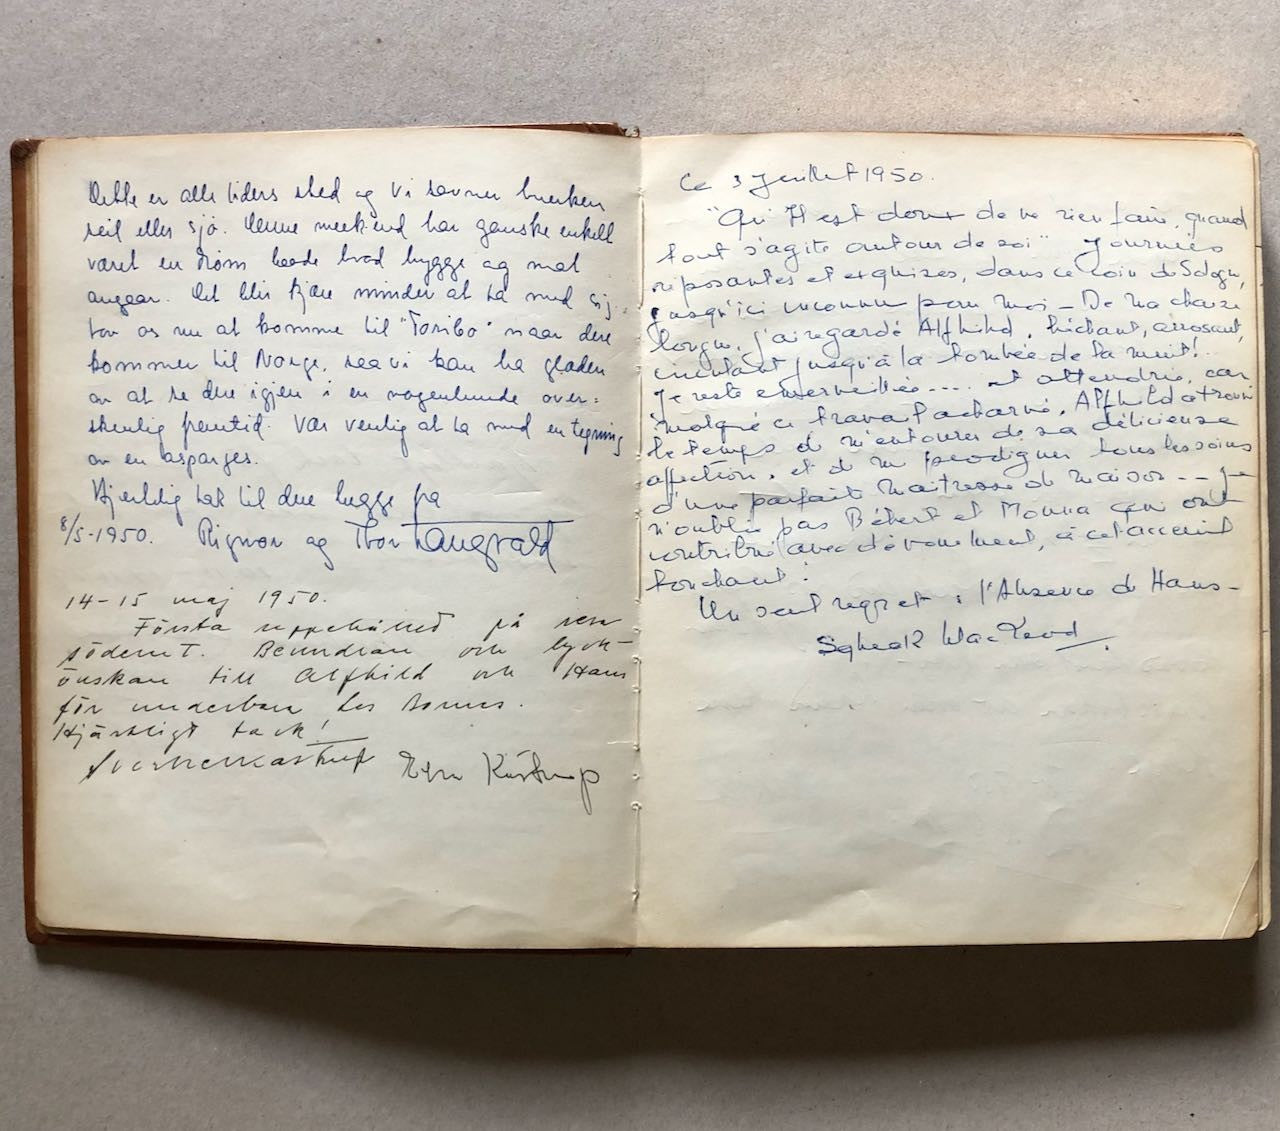 Dette er alle tiders sted og vi savner hverken
seil eller sjö. Denne weekend har ganske enkelt
været en dröm baade hvad hygge og mat
angaar. Det blir kjære minder at ta med sig,
os nu at komme til "Toribo" naar dere
kommer til Norge, saa vi kan ha gleden
av at se dere igjen i en overskuelig
skuelig fremtid. Vær venlig at ta med en tegning
av en asparges.
Hjertelig tak til dere begge fra
8/5-1950. og Thor
14-15 maj 1950.
Första uppehållet på resa
söderut. Beundran och lyck-
önskan till Alfhild och Hans
för underbara
Hjärtligt tack!
Ce 3 Juillet 1950.
"Qu'il est doux de ne rien faire, quand
tout s'agite autour de soi" Journées
reposantes et exquises, dans ce coin de Sologne,
jusqu'ici inconnu pour moi - De ma chaise
longue, j'ai regardé Alfhild, bêchant, arrosant,
jusqu'à la tombée de la nuit!
Je reste émerveillée.... et attendrie, car
malgré ce travail acharné, Alfhild a trouvé
le temps de m'entourer de sa délicieuse
affection, et de me prodiguer tous les soins
d'une parfaite maîtresse de maison -- Je
n'oublie pas Bébert et Mouna qui ont
contribué avec dévouement, à cet accueil
touchant!
Un seul regret : l'Absence de Hans -